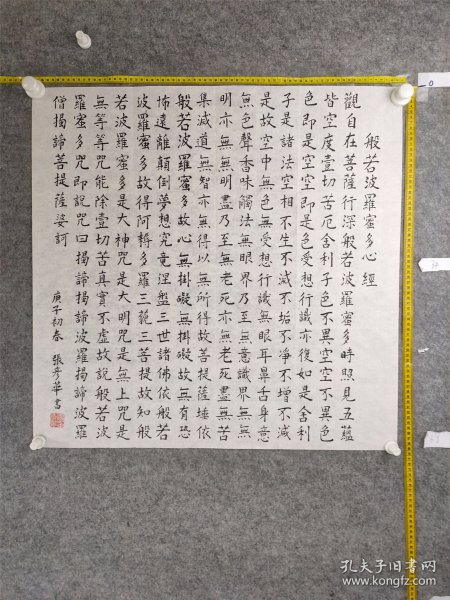 般若波羅蜜多心經
觀自在菩薩行深般若波羅蜜多時照見五蘊
皆空度壹切苦厄舍利子色不異空空不異色
色即是空空即是色受想行識亦復如是舍利
子是諸法空相不生不滅不垢不淨不增不減
是故空中無色無受想行識無眼耳鼻舌身意
無色聲香味觸法無眼界乃至無意識界無無
明亦無無明盡乃至無老死亦無老死盡無苦
集滅道無智亦無得以無所得故菩提薩埵依
般若波羅蜜多故心無掛礙無掛礙故無有恐
怖遠離顛倒夢想究竟涅盤三世諸佛依般若
波羅蜜多故得阿耨多羅三藐三菩提故知般
若波羅蜜多是大神咒是大明咒是無上咒是
無等等咒能除壹切苦真實不虛故說般若波
羅蜜多咒即說咒曰揭諦揭諦波羅揭諦波羅
僧揭諦菩提薩婆訶
庚子初春 張彥華書
孔夫子旧书网
www.kongfz.com